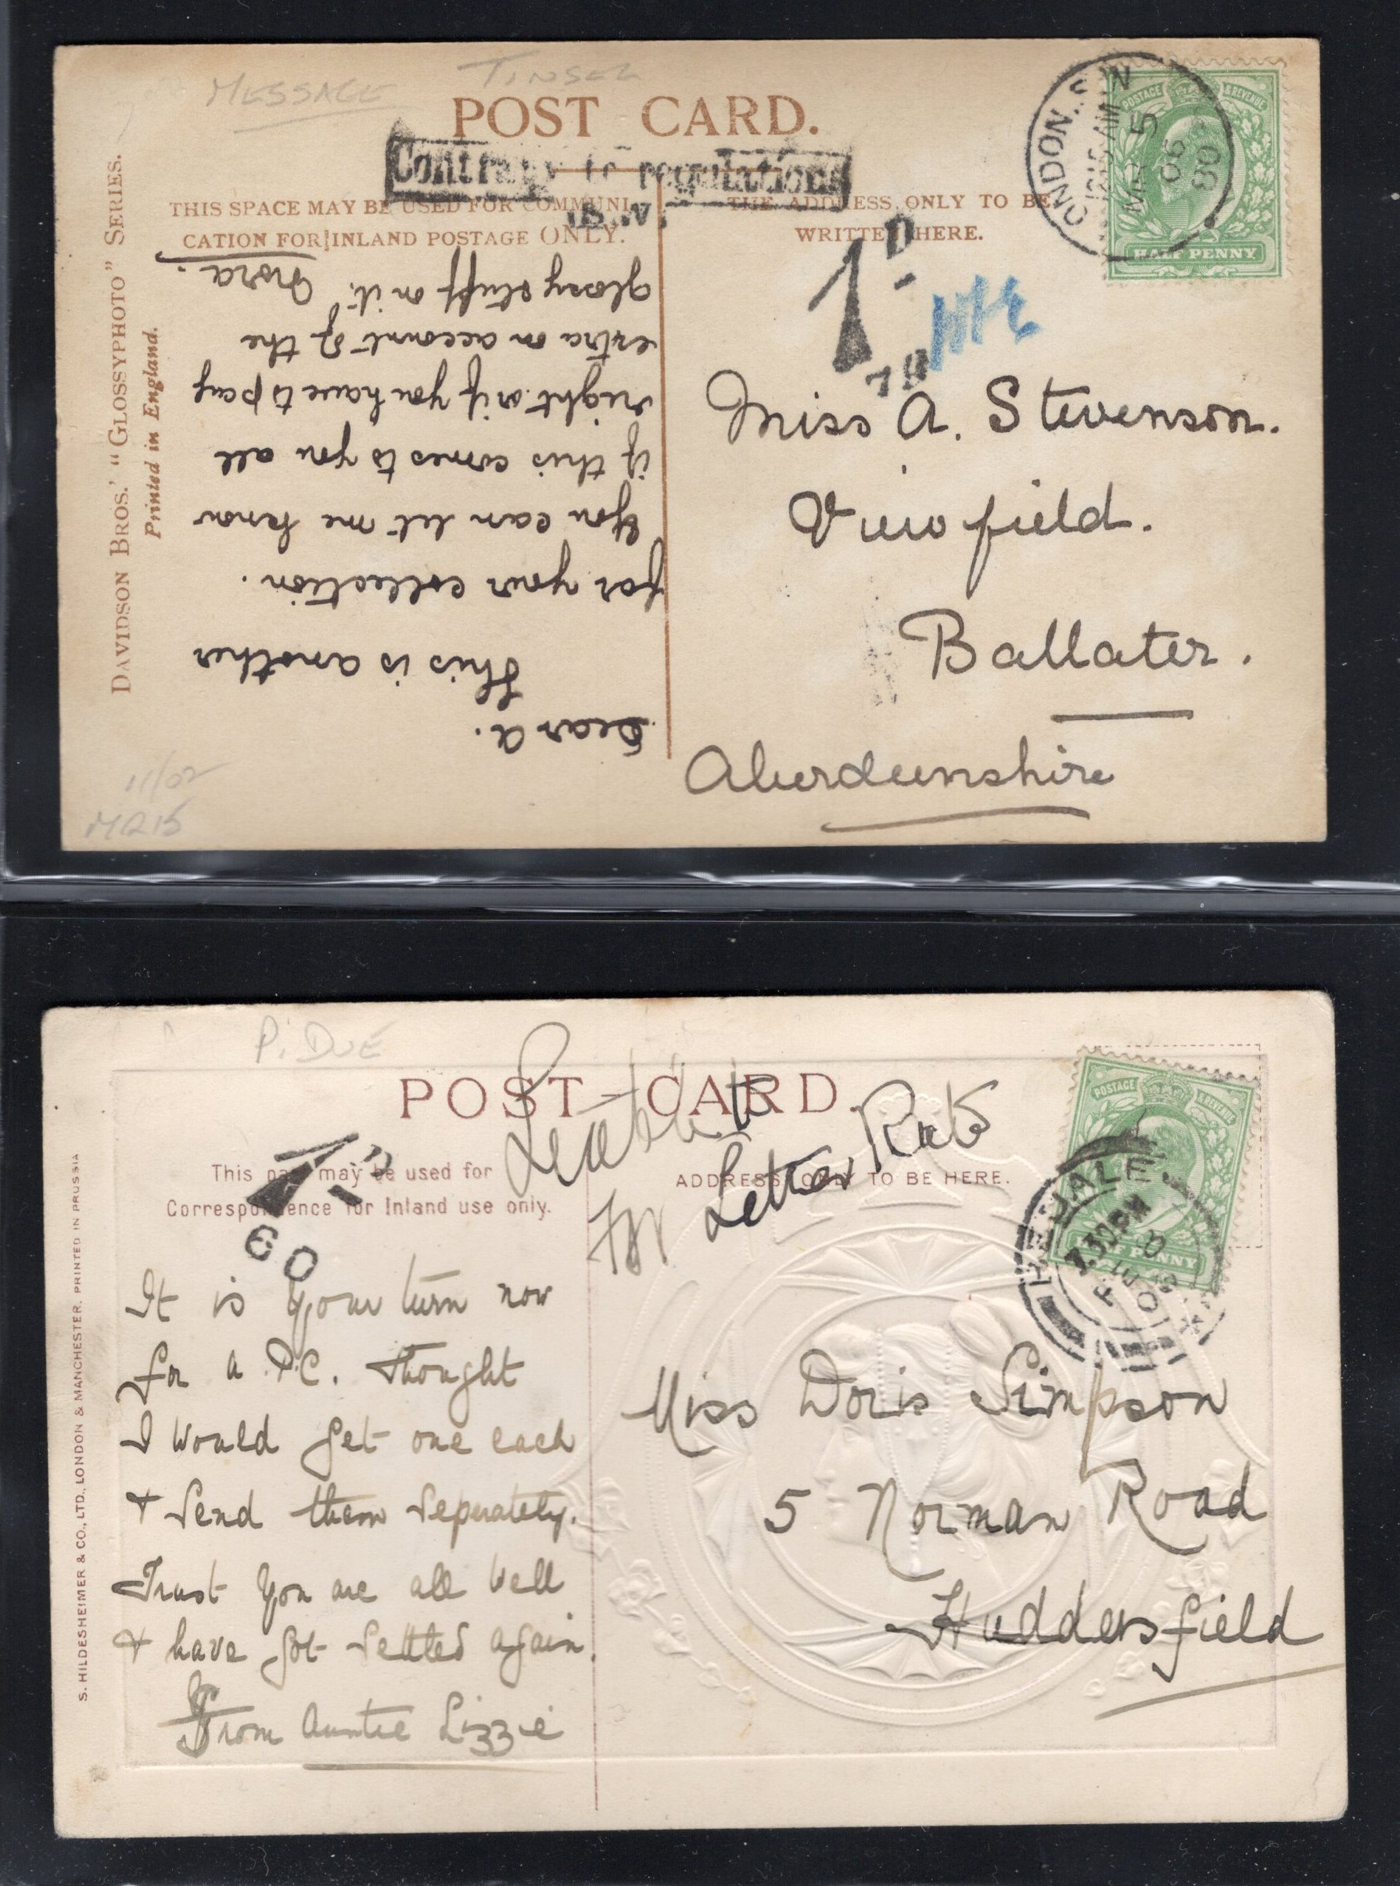 MESSAGE
TINSEL
POST CARD.
Contrary to regulations
S.W.
THIS SPACE MAY BE USED FOR COMMUNI-
CATION FOR INLAND POSTAGE ONLY.
THE ADDRESS ONLY TO BE
WRITTEN HERE.
DAVIDSON BROS.' "GLOSSYPHOTO" SERIES.
Printed in England.
LONDON. S.W
12.15 AM
MR 5
06
80
POSTAGE & REVENUE
HALF PENNY
1D
Dear A.
This is another
for your collection.
You can let me know
if this comes to you all
right or if you have to pay
extra on account of the
glossy stuff on it.
Nora.
Miss A. Stevenson.
Viewfield.
Ballater.
Aberdeenshire
11/02
MR15
P. DUE
POST-CARD.
Liable to
Letter Rate
This part may be used for
Correspondence for Inland use only.
ADDRESS ONLY TO BE HERE.
S. HILDESHEIMER & CO., LTD., LONDON & MANCHESTER. PRINTED IN PRUSSIA
1D
60
POSTAGE & REVENUE
HALF PENNY
7.30PM
It is your turn now
for a P.C. Thought
I would get one each
& send them seperately.
Trust you are all well
& have got settled again.
From Auntie Lizzie
Miss Doris Simpson
5 Norman Road
Huddersfield